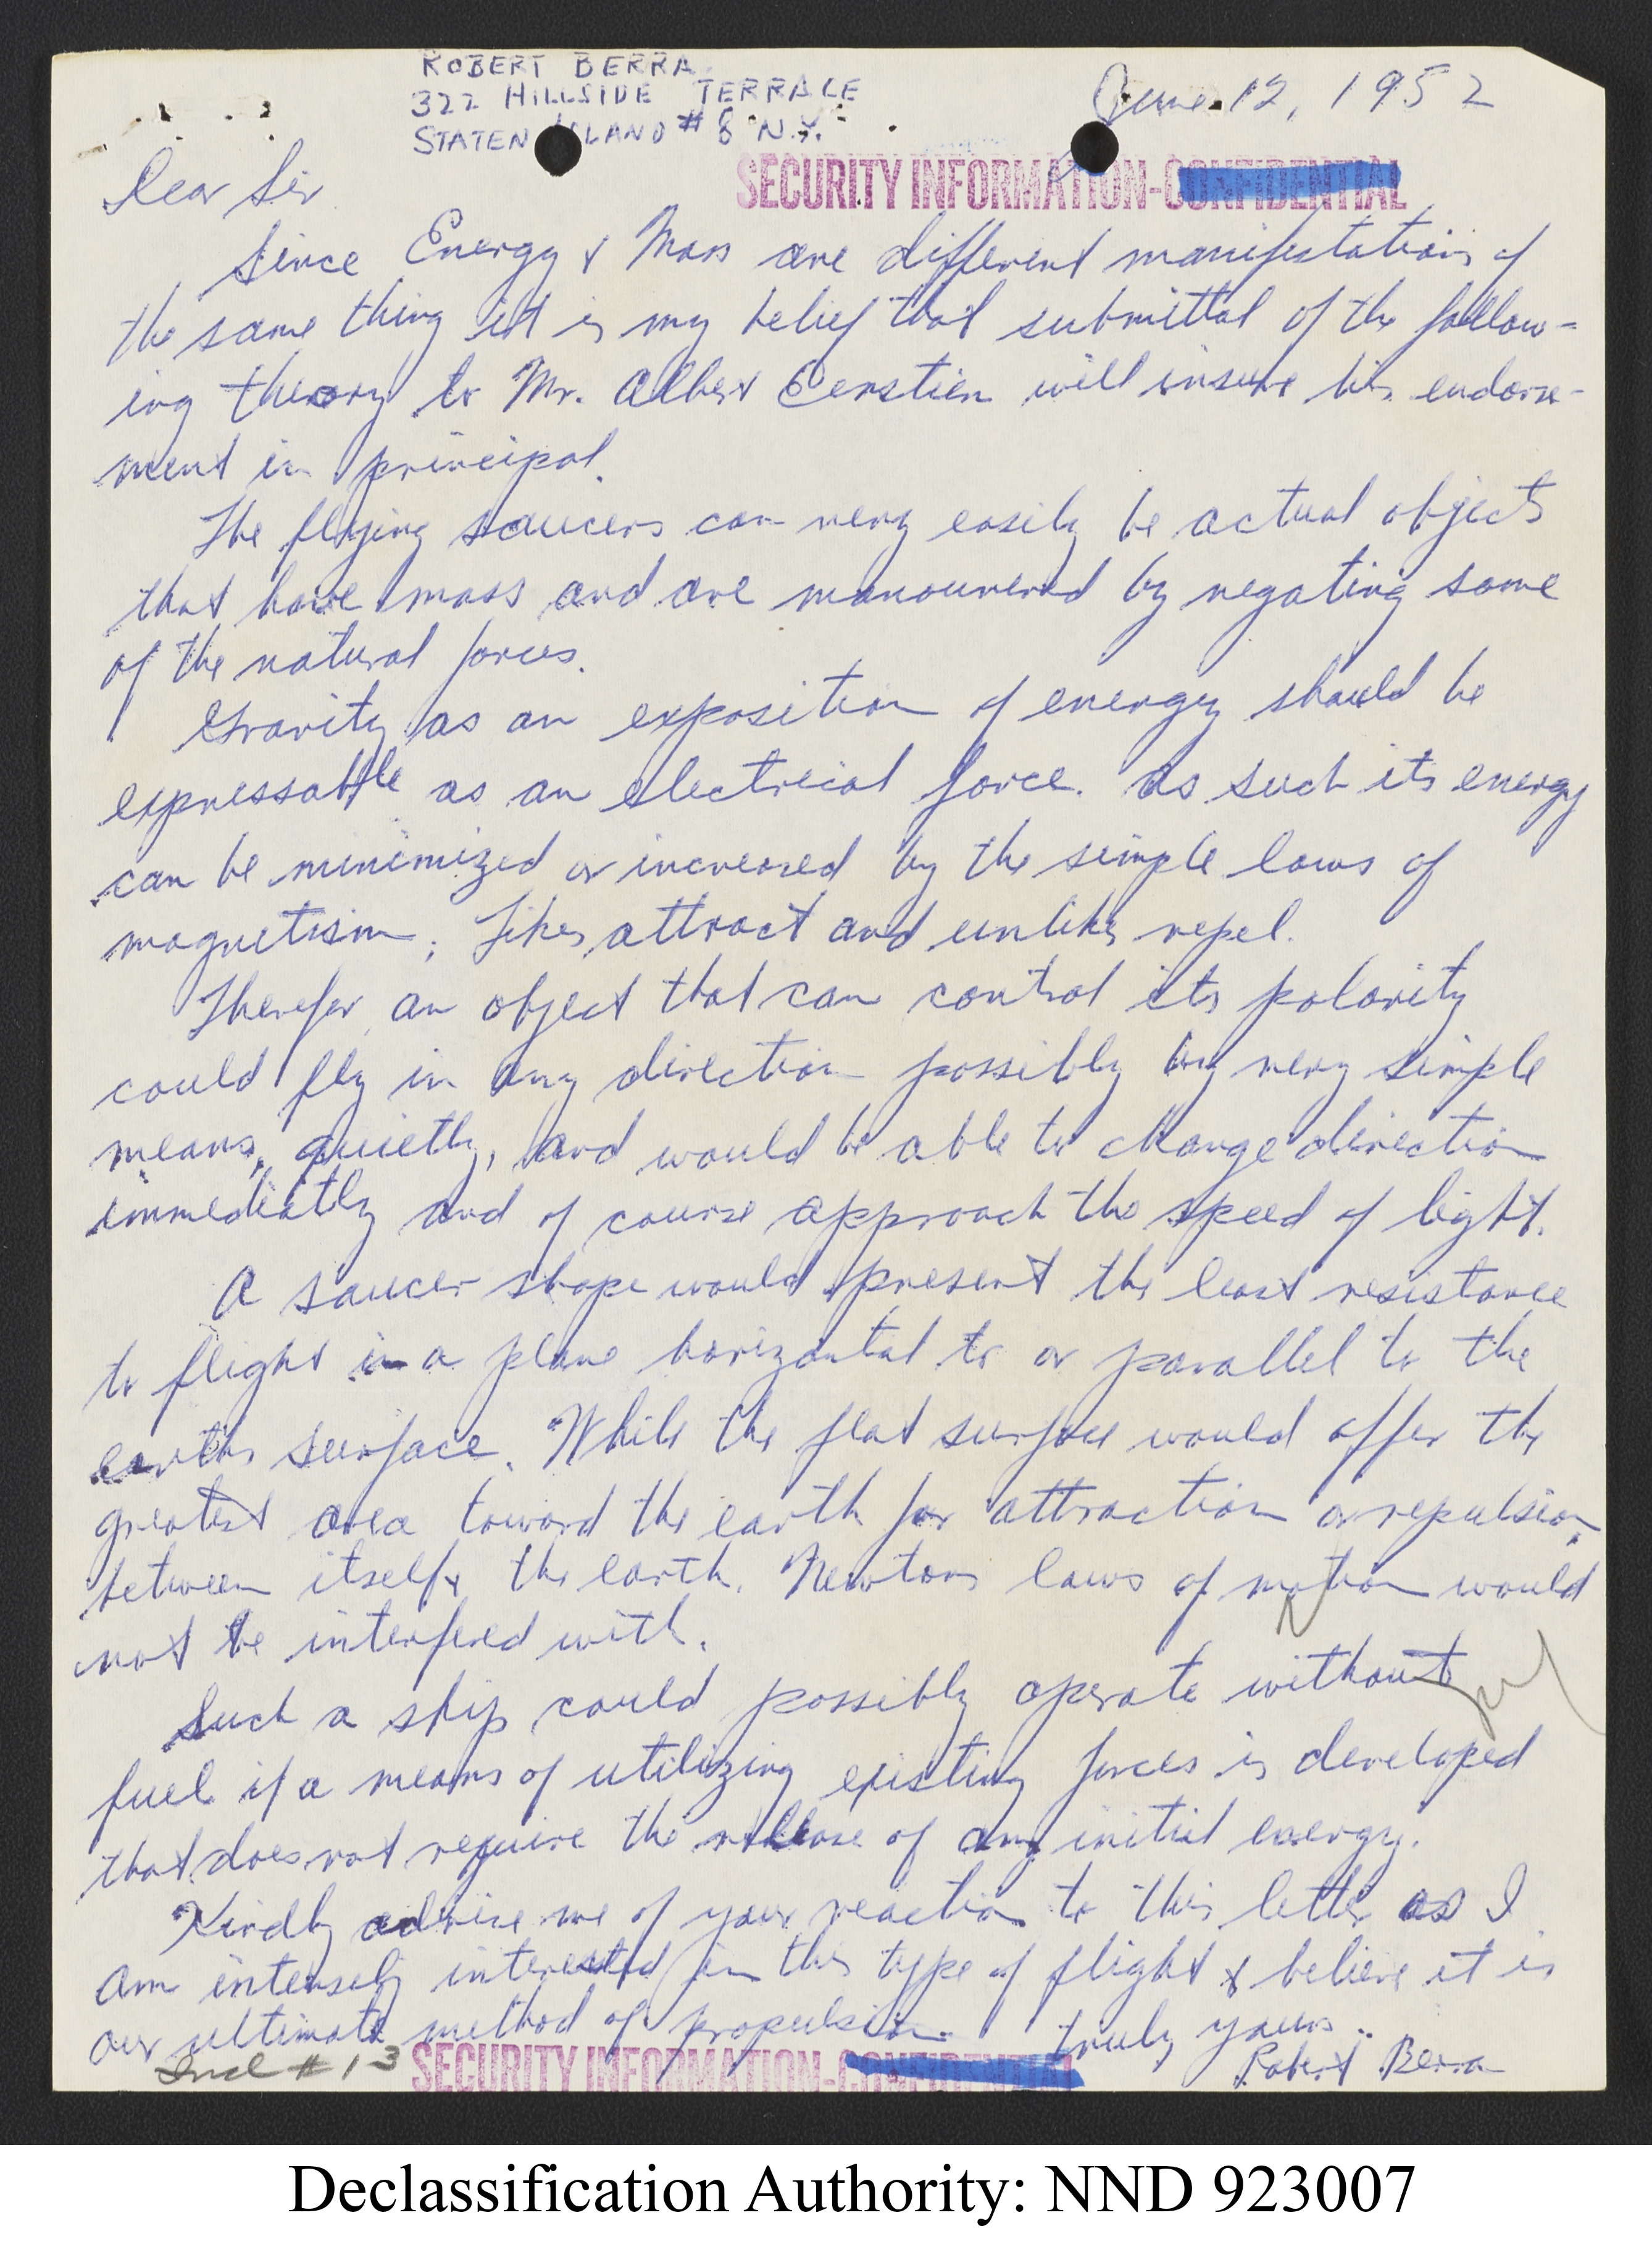 ROBERT BERRA
322 HILLSIDE TERRACE
STATEN ISLAND #8 N.Y.
June 12, 1952
SECURITY INFORMATION-CONFIDENTIAL
Dear Sir
Since Energy & Mass are different manifestations of
the same thing it is my belief that submittal of the follow-
ing theory to Mr. Albert Eenstien will insure his endorse-
ment in principal.
The flying saucers can very easily be actual objects
that have mass and are manouvered by negating some
of the natural forces.
Gravity as an exposition of energy should be
expressable as an electrical force. As such its energy
can be minimized or increased by the simple laws of
magnetism; Likes attract and unlikes repel.
Therefor an object that can control its polarity
could fly in any direction possibly by very simple
means, quietly, and would be able to change direction
immediatly and of course approach the speed of light.
A saucer shape would present the least resistance
to flight in a plane horizontal to or parallel to the
earths surface. While the flat surface would offer the
greatest area toward the earth for attraction or repulsion
between itself & the earth. Newtons laws of motion would
not be interfered with.
Such a ship could possibly operate without
fuel if a means of utilizing existing forces is developed
that does not require the release of any initial energy.
Kindly advise me of your reaction to this letter as I
am intensely interested in this type of flight & believe it is
our ultimate method of propulsion. Truly yours
Robert Berra
Incl #13
SECURITY INFORMATION-CONFIDENTIAL
Declassification Authority: NND 923007